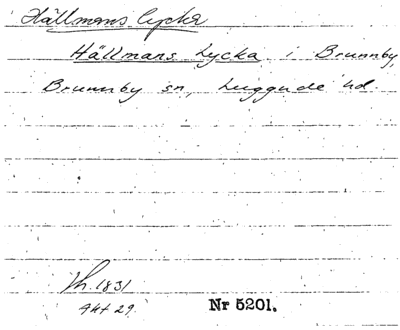 Hällmans lycka
Hällmans Lycka i Brunnby,
Brunnby sn, Luggude hd.
Lh. 1831
Akt 29.
Nr 5201.